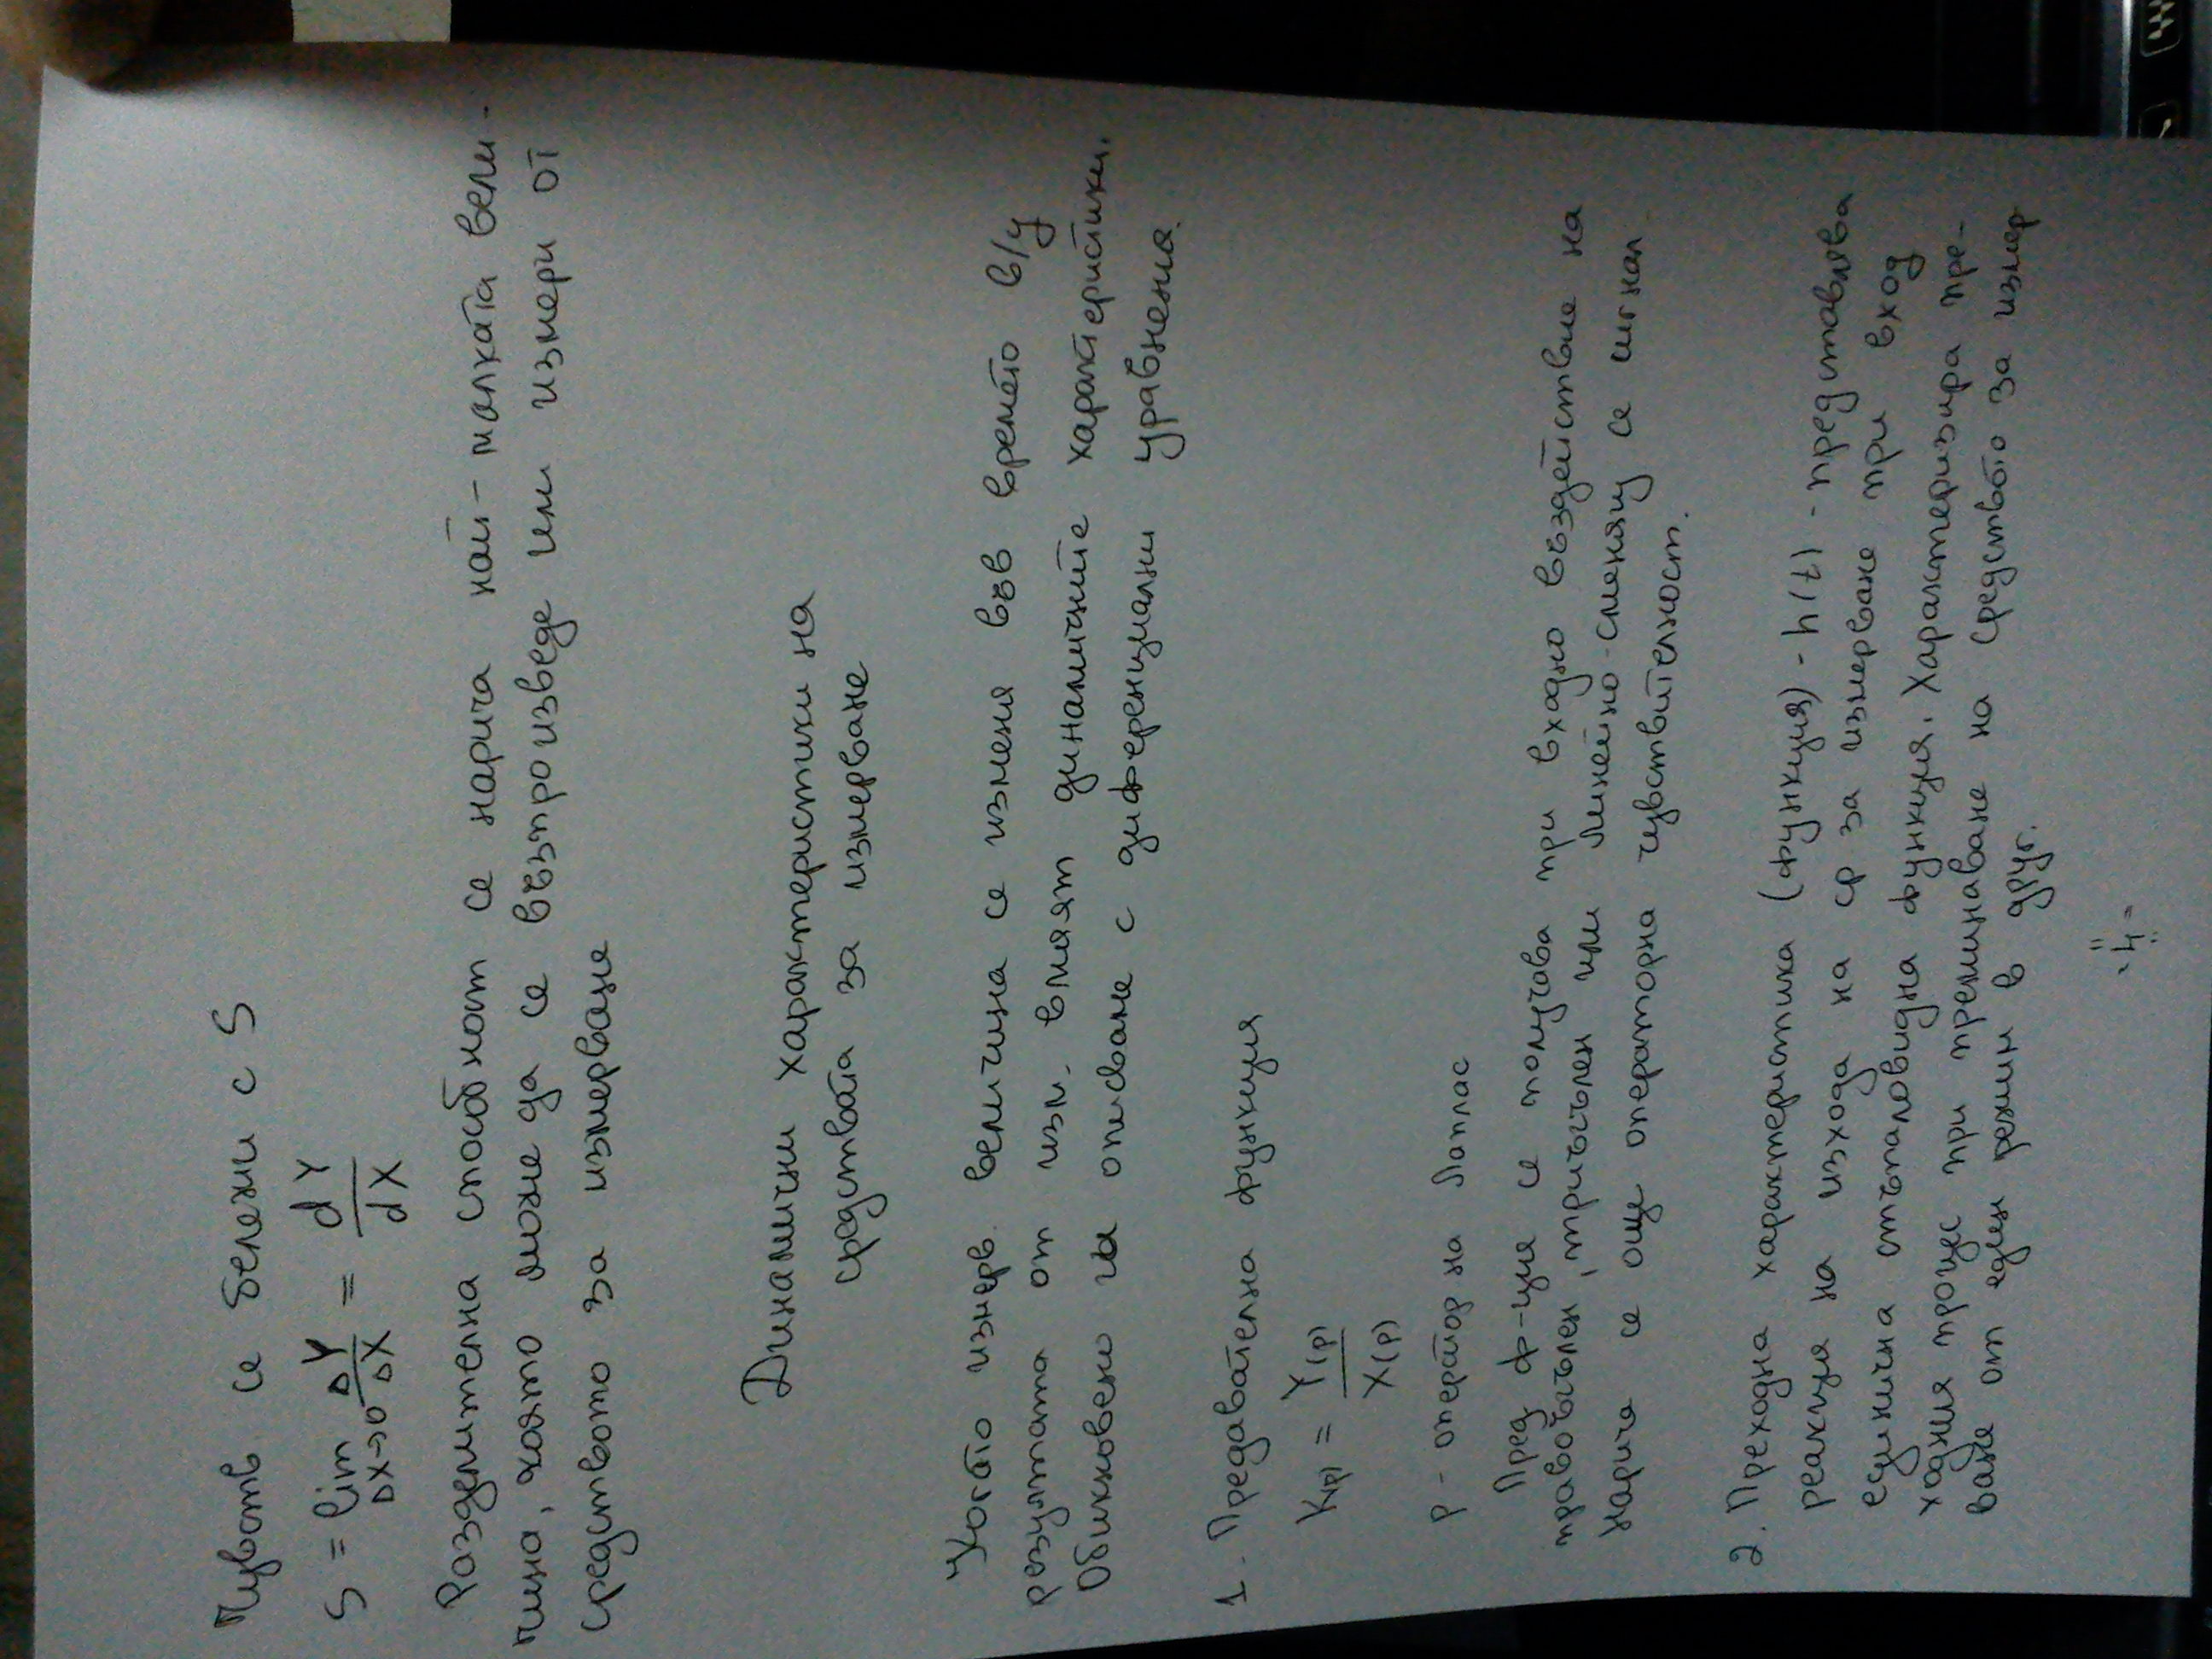 Чувств се бележи с S
S = lim ΔY/ΔX = dY/dX
Δx→0
Разделителна способност се нарича най-малката вели-
чина, която може да се възпроизведе или измери от
средството за измерване
Динамични характеристики на
средствата за измерване
Когато измерв. величина се изменя във времето в/у
резултата от изм. влияят динамичните характеристики.
Обикновено ги описваме с диференциални уравнения.
1. Предавателна функция
K(p) = Y(p)/X(p)
p - оператор на Лаплас
Пред ф-ция се получава при входно въздействие на
правоъгълен, триъгълен или линейно-сменящ се сигнал.
нарича се още операторна чувствителност.
2. Преходна характеристика (функция) - h(t) - представлява
реакция на изхода на ср за измерване при вход
единична стъпаловидна функция. Характеризира пре-
ходния процес при преминаване на средството за измер
ване от един режим в друг.
"4"